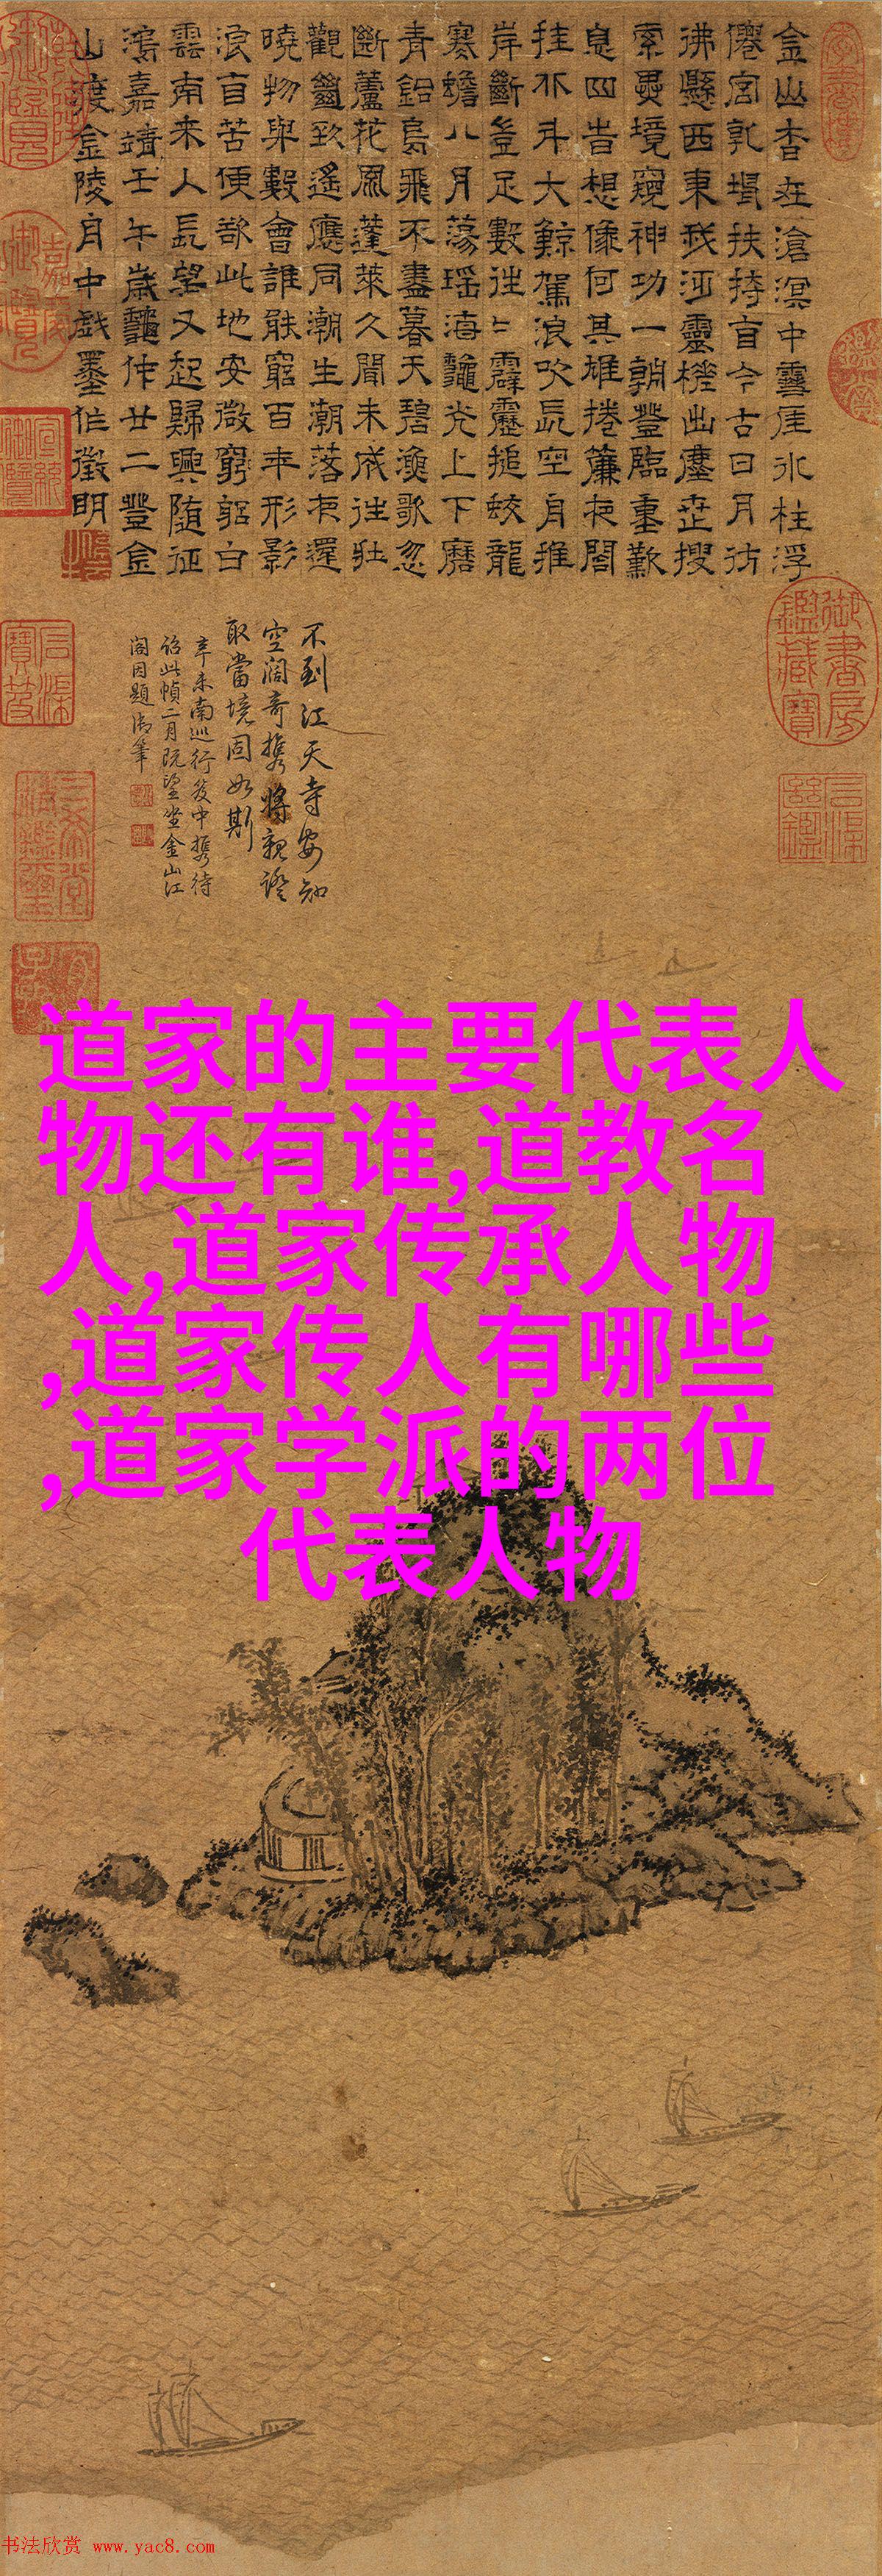 金山杳在滄溟中雪厓冰柱浮
僊宮乾坤扶持自今古日月彷
彿懸西東我泛靈槎出塵世搜
索異境窺神功一朝登臨重歎
息四時想像何其雄捲簾夜閣
挂北斗大鯨駕浪吹長空舟摧
岸斷豈足數往往霹靂搥蛟龍
寒蟾八月蕩瑤海龜光上下磨
青銅鳥飛不盡暮天碧漁歌忽
斷蘆花風蓬萊久聞未成往壯
觀絕致遙應同潮生潮落夜還
曉物與數會誰能窮百年形影
浪自苦便欲此地安微躬白
雲南來人長望又起歸興隨征
鴻嘉靖壬午歲龝仲廿二登金
山渡金陵舟中戲墨作徵明
不到江天寺安知
空闊奇攜將親證
取當境固如斯
辛未南巡行笈中攜待
詔此幀二月既望坐金山江
閣因題御筆
御書房
鑑藏寶
道家的主要代表人
物还有谁,道教名
人,道家传承人物
,道家传人有哪些
,道家学派的两位
代表人物
书法欣赏 www.yac8.com